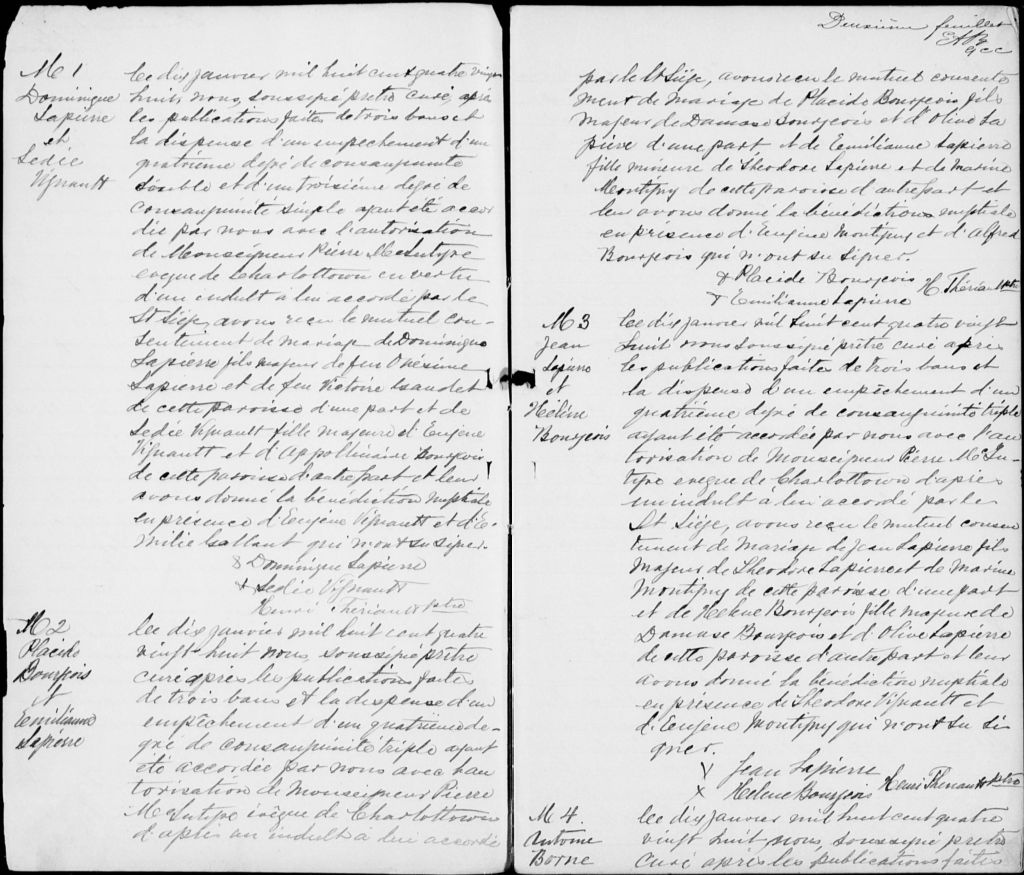 M 1
Dominique
Lapierre
et
Sedée
Vignault
Le dix janvier mil huit cent quatre vingt
huit, nous, soussigné prêtre curé, après
les publications faites de trois bans et
la dispense d'un empêchement d'un
quatrième degré de consanguinité
double et d'un troisième degré de
consanguinité simple ayant été accor
dée par nous avec l'autorisation
de Monseigneur Pierre McIntyre
evêque de Charlottown en vertu
d'un indult à lui accordé par le
St Siège, avons reçu le mutuel con-
sentement de mariage de Dominique
Lapierre fils majeur de feu Onésime
Lapierre et de feu Victoire Gaudet
de cette paroisse d'une part et de
Sedée Vignault fille majeure d'Eugène
Vignault et d'Appollinaire Bourgeois
de cette paroisse d'autre part et leur
avons donné la bénédiction nuptiale
en présence d'Eugène Vignault et d'É-
milie Gallant qui n'ont su signer.
x Dominique Lapierre
x Sedée Vignault
Henri Thériault ptre
M 2
Placide
Bourgeois
et
Emilianne
Lapierre
Le dix janvier mil huit cent quatre
vingt huit nous, soussigné prêtre
curé après les publications faites
de trois bans et la dispense d'un
empêchement d'un quatrième de-
gré de consanguinité triple ayant
été accordée par nous avec l'au
torisation de Monseigneur Pierre
McIntyre évêque de Charlottown
d'après un indult à lui accordé
Deuxième feuillet
par le St Siège, avons reçu le mutuel consente
ment de mariage de Placide Bourgeois fils
majeur de Damase Bourgeois et d'Olive La
pierre d'une part et de Emilianne Lapierre
fille mineure de Theodore Lapierre et de Marine
Montigny de cette paroisse d'autre part et
leur avons donné la bénédiction nuptiale
en présence d'Eugène Montigny et d'Alfred
Bourgeois qui n'ont su signer.
x Placide Bourgeois H. Thériault ptre
x Emilianne Lapierre
M 3
Jean
Lapierre
et
Hélène
Bourgeois
Le dix janvier mil huit cent quatre vingt
huit nous soussigné prêtre curé après
les publications faites de trois bans et
la dispense d'un empêchement d'un
quatrième degré de consanguinité triple
ayant été accordée par nous avec l'au
torisation de Monseigneur Pierre McIn-
tyre evêque de Charlottown d'après
un indult à lui accordé par le
St Siège, avons reçu le mutuel consen
tement de mariage de Jean Lapierre fils
majeur de Theodore Lapierre et de Marine
Montigny de cette paroisse d'une part
et de Helene Bourgeois fille majeure de
Damase Bourgeois et d'Olive Lapierre
de cette paroisse d'autre part et leur
avons donné la bénédiction nuptiale
en présence de Theodore Vignault et
d'Eugène Montigny qui n'ont su si
gner.
x Jean Lapierre
x Helene Bourgeois Henri Thériault ptre
M 4.
Antoine
Borne
Le dix janvier mil huit cent quatre
vingt huit nous, soussigné prêtre
curé après les publications faites